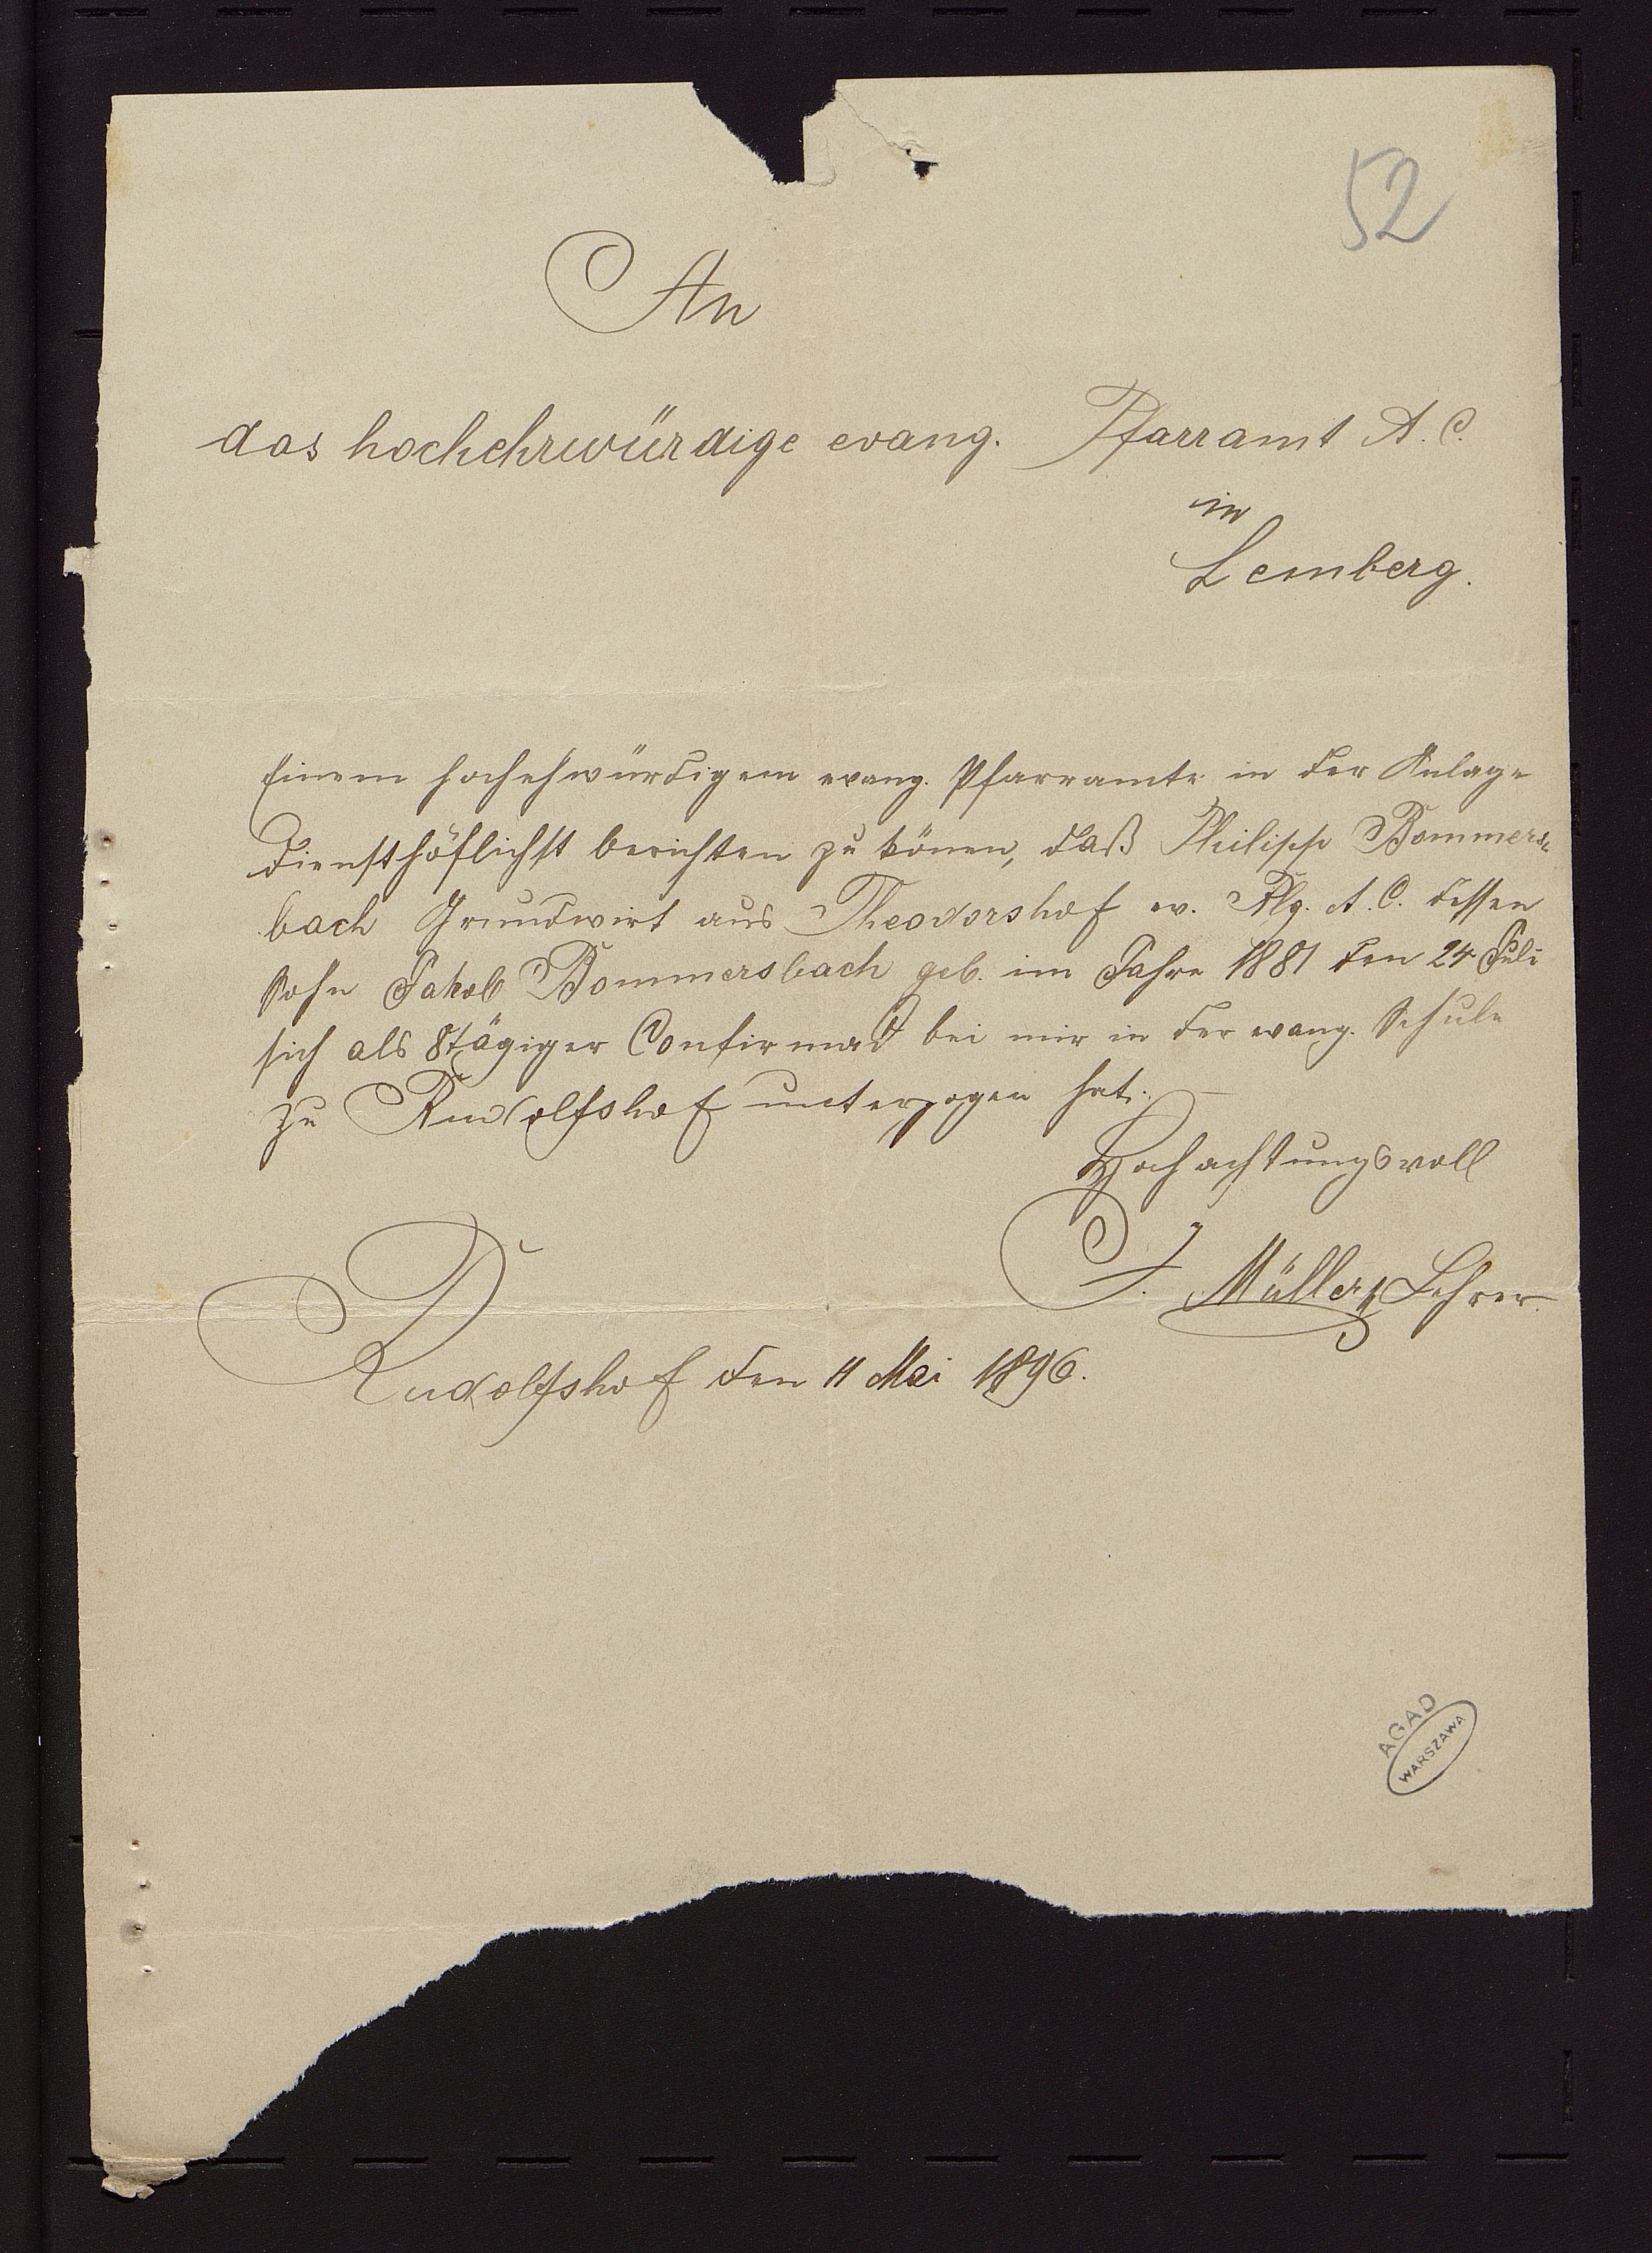 52
An
das hochehrwürdige evang. Pfarramt A. C.
in
Lemberg.
Einem hochehwürdigem evang. Pfarramte in der Anlage
diensthöflichst berichten zu könen, daß Philipp Bommers-
bach Grundwirt aus Theodorshof ev. Rlg. A. C. dessen
Sohn Jakob Bommersbach geb. im Jahre 1881 den 24 Juli
sich als 8tägiger Confirmad bei mir in der evang. Schule
zu Rudolfshof unterzogen hat.
Hochachtungsvoll
J. Müller Lehrer
Rudolfshof den 11 Mai 1896.
AGAD
WARSZAWA